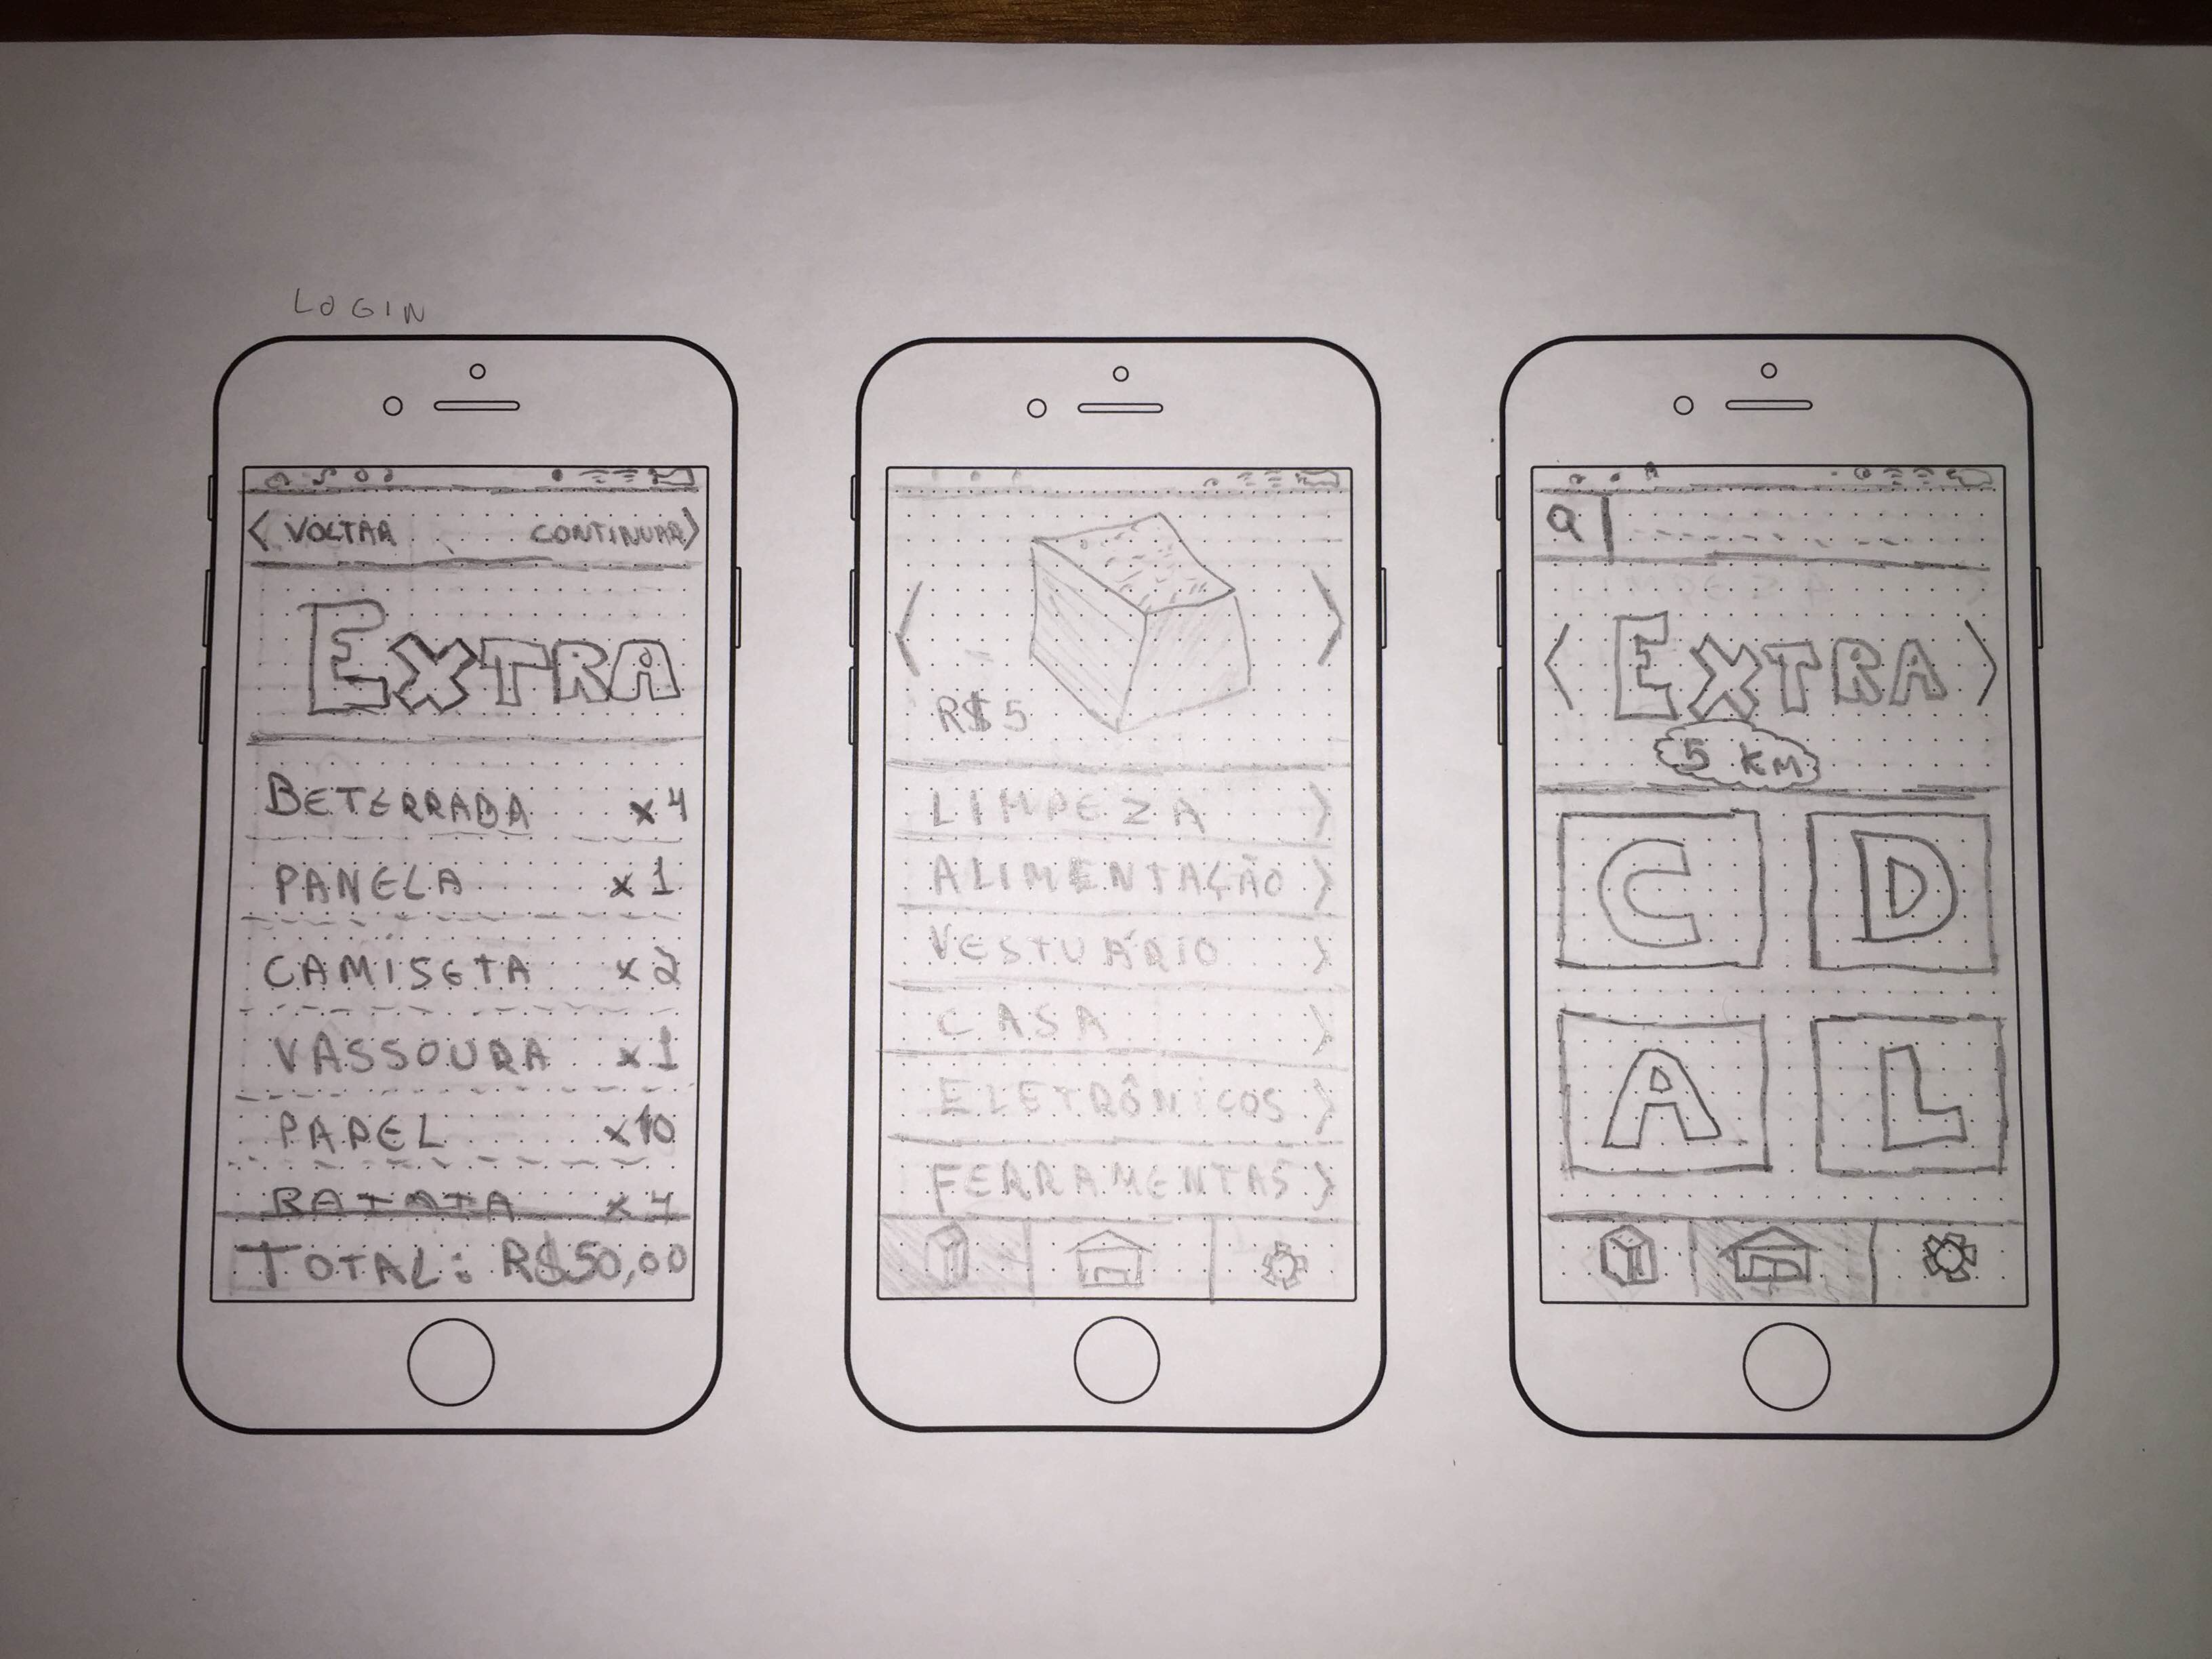 LOGIN
< VOLTAR CONTINUAR >
EXTRA
BETERRABA x4
PANELA x1
CAMISETA x2
VASSOURA x1
PAPEL x10
BATATA x4
TOTAL: R$50,00
R$5
LIMPEZA >
ALIMENTAÇÃO >
VESTUÁRIO >
CASA >
ELETRÔNICOS >
FERRAMENTAS >
< EXTRA >
5 KM
C D
A L